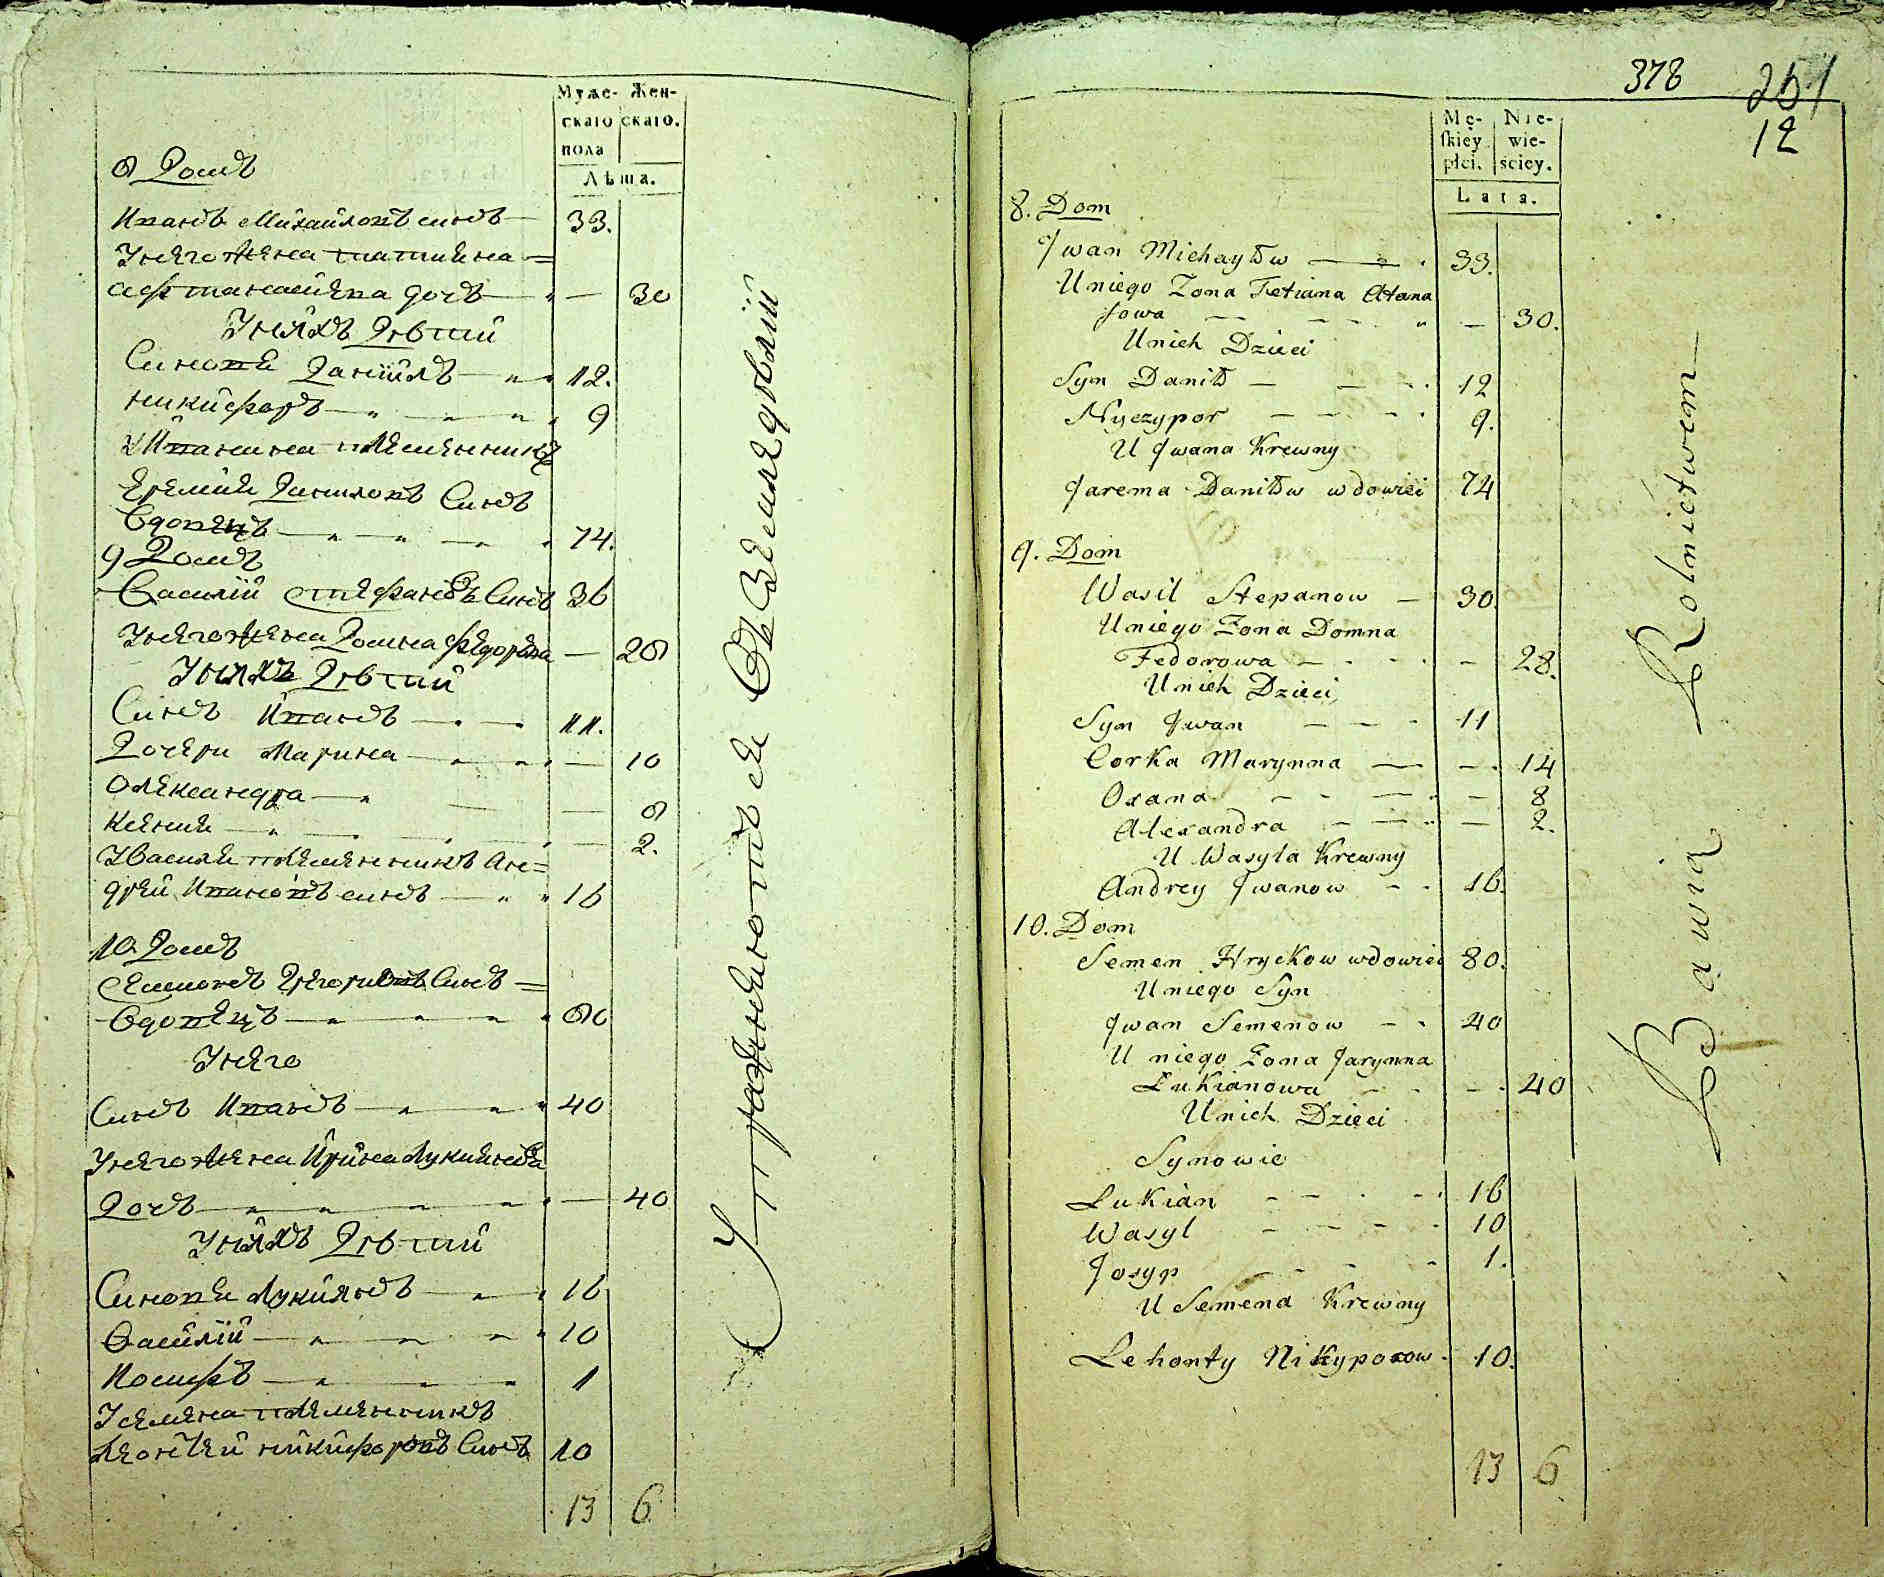 Муже- Жен-
скаго скаго.
пола
Лѣта.
8 Домъ
Иванъ Михайловъ синъ — 33.
Унего жена татияна =
афтанасиева дочъ — — 30
Унихъ Дѣтий
Синове Даниїлъ — 12.
никифоръ — 9
У Ивана племенникъ
Еремий Даниловъ Синъ
Вдовецъ — 74.
9 Домъ
Василїй Стефановъ Синъ 36
Унего жена Домна федорова — 28
Унихъ Дѣтий
Синъ Иванъ — 11.
Дочери Марина — — 10
Олександра — — 8
Ксения — — 2.
У Василя племенникъ Ан=
дрей Ивановъ синъ — 16
10 Домъ
Симионъ Григориевъ Синъ =
Вдовецъ — 80
Унего
Синъ Иванъ — 40
Унего жена Ирина Лукиянова
Дочъ — — 40
Унихъ Дѣтий
Синове Лукиянъ — 16
Василїй — 10
Иосифъ — 1
У семена племенникъ
Леонтей никифоровъ Синъ 10
13 6
Упражняются въ земледѣлїи
378 251
12
Mę- Nie-
skiey wie-
płci. ściey.
Lata.
8. Dom
Jwan Michayłow — 33.
Uniego Zona Tetiana Atana
sowa — — 30.
Unich Dzieci
Syn Danił — 12
Nyczypor — 9.
U Jwana Krewny
Jarema Daniłow wdowiec 74
9. Dom
Wasil Stepanow — 30
Uniego Zona Domna
Fedorowa — — 28.
Unich Dzieci
Syn Jwan — 11
Corka Marynna — — 14
Oxana — — 8
Alexandra — — 2.
U Wasyla Krewny
Andrey Jwanow — 16.
10. Dom
Semen Hryckow wdowiec 80.
Uniego Syn
Jwan Semenow — 40
U niego Zona Jarynna
Łukianowa — 40
Unich Dzieci
Synowie
Łukian — 16
Wasyl — 10
Josyp — 1.
U Semena Krewny
Lehonty Nikyporow 10.
13 6
Bawią Rolnictwem